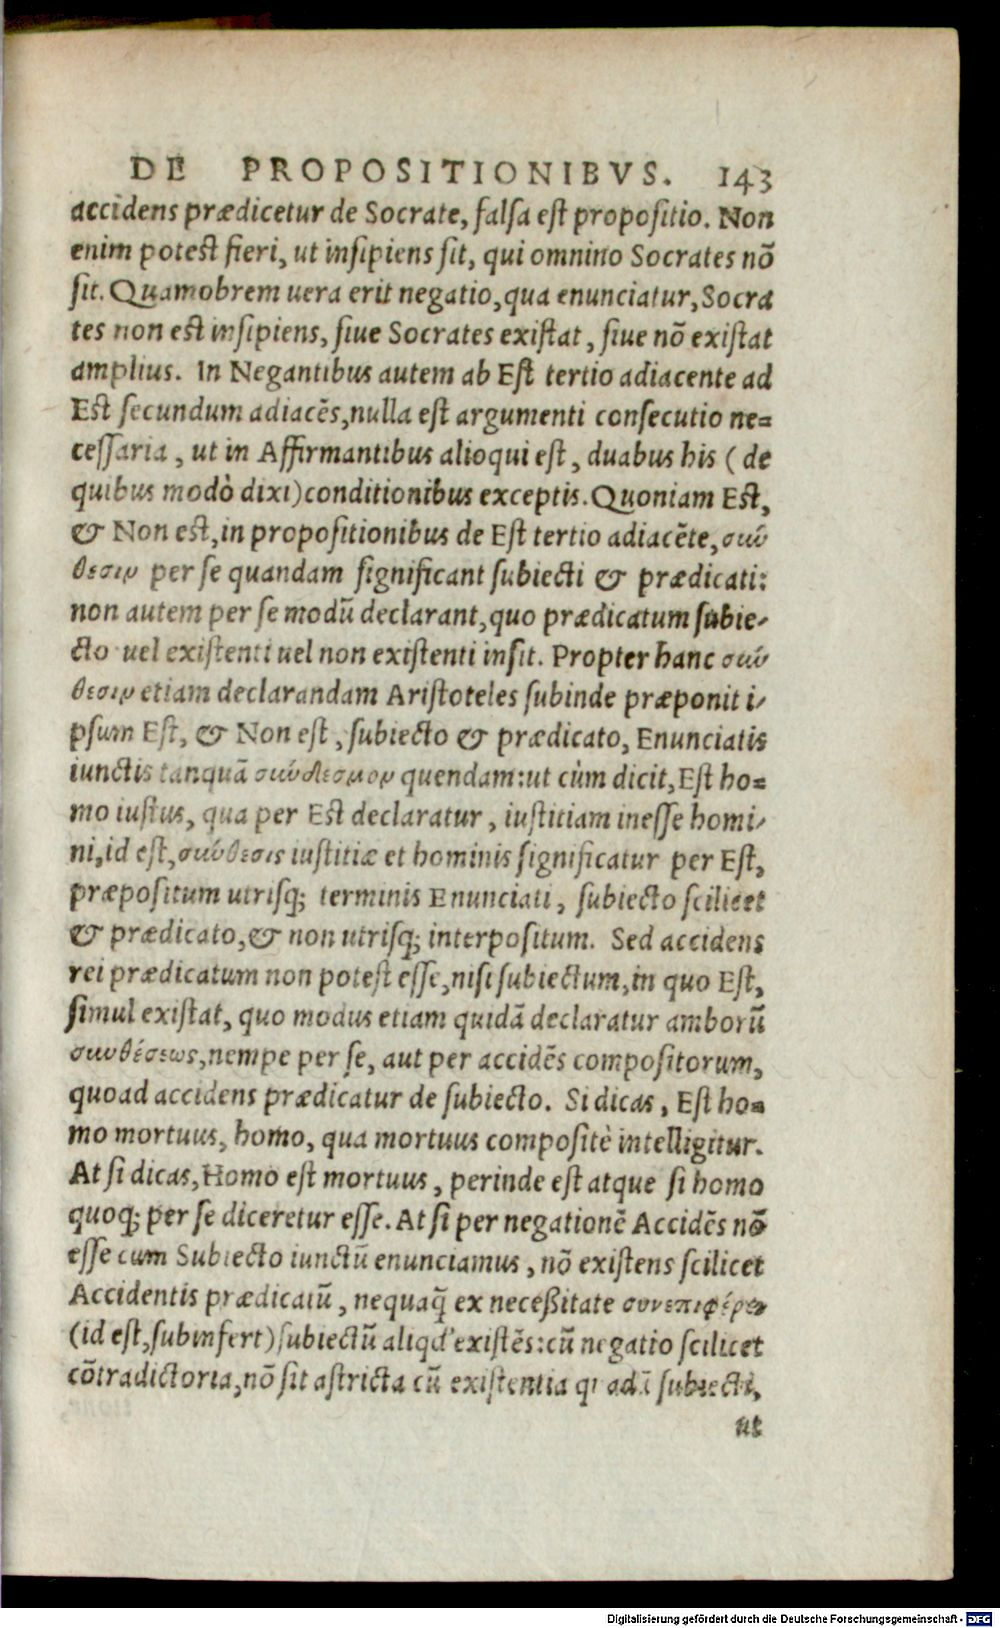 DE PROPOSITIONIBVS. 143
accidens prædicetur de Socrate, falsa est propositio. Non
enim potest fieri, ut insipiens sit, qui omnino Socrates nō
sit. Quamobrem uera erit negatio, qua enunciatur, Socra
tes non est insipiens, siue Socrates existat, siue nō existat
amplius. In Negantibus autem ab Est tertio adiacente ad
Est secundum adiacēs, nulla est argumenti consecutio ne=
cessaria, ut in Affirmantibus alioqui est, duabus his (de
quibus modò dixi) conditionibus exceptis. Quoniam Est,
& Non est, in propositionibus de Est tertio adiacēte, σύν
θεσιν per se quandam significant subiecti & prædicati:
non autem per se modū declarant, quo prædicatum subie-
cto uel existenti uel non existenti insit. Propter hanc σύν
θεσιν etiam declarandam Aristoteles subinde præponit i-
psum Est, & Non est, subiecto & prædicato, Enunciatis
iunctis tanquā σύνδεσμον quendam: ut cùm dicit, Est ho=
mo iustus, qua per Est declaratur, iustitiam inesse homi-
ni, id est, σύνθεσις iustitiæ et hominis significatur per Est,
præpositum utrisq; terminis Enunciati, subiecto scilicet
& prædicato, & non utrisq; interpositum. Sed accidens
rei prædicatum non potest esse, nisi subiectum, in quo Est,
simul existat, quo modus etiam quidā declaratur amborū
συνθέσεως, nempe per se, aut per accidēs compositorum,
quoad accidens prædicatur de subiecto. Si dicas, Est ho=
mo mortuus, homo, qua mortuus compositè intelligitur.
At si dicas, Homo est mortuus, perinde est atque si homo
quoq; per se diceretur esse. At si per negationē Accidēs nō
esse cum Subiecto iunctū enunciamus, nō existens scilicet
Accidentis prædicatū, nequaq̃ ex necessitate συνεπιφέρει
(id est, subinfert) subiectū aliqd' existēs: cū negatio scilicet
cōtradictoria, nō sit astricta cū existentia quadā subiecti,
ut
Digitalisierung gefördert durch die Deutsche Forschungsgemeinschaft - DFG